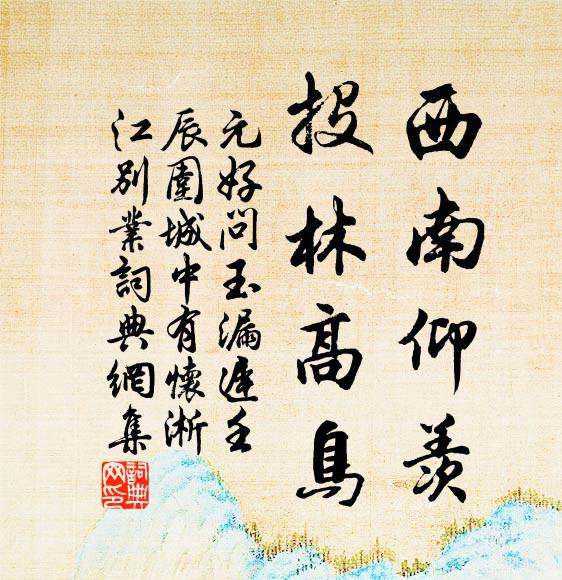 西南仰羡
投林高鳥
元好問玉漏遲壬
辰圍城中有懷淅
江別業詞典網集
詞典網印